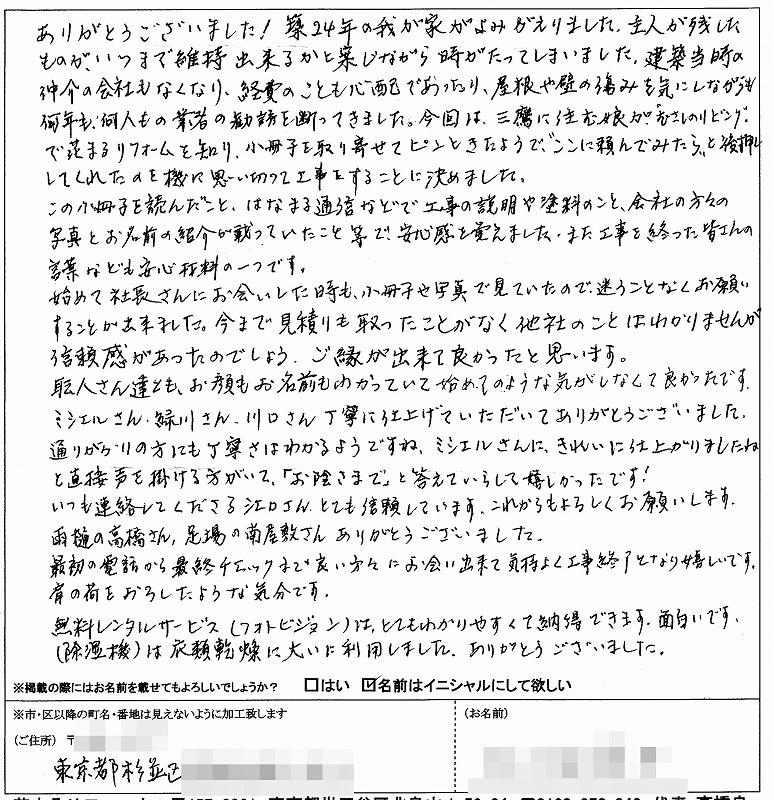 ありがとうございました! 築24年の我が家がよみがえりました。主人が残した
ものが、いつまで維持出来るかと案じながら時がたってしまいました。建築当時の
仲介の会社もなくなり、経費のことも心配であったり、屋根や壁の傷みを気にしながらも
何年も、何人もの業者の勧誘を断ってきました。今回は、三鷹に住む娘が"むさしのリビング"
で花まるリフォームを知り、小冊子を取り寄せてピンときたようで"ここに頼んでみたら"と後押し
してくれたのを機に思い切って工事をすることに決めました。
この小冊子を読んだこと、はなまる通信などで工事の説明や塗料のこと、会社の方々の
写真とお名前の紹介が載っていたこと等で、安心感を覚えました。また工事を終った皆さんの
言葉なども安心材料の一つです。
始めて社長さんにお会いした時も、小冊子や写真で見ていたので迷うことなくお願い
することが出来ました。今まで見積りも取ったことがなく他社のことはわかりませんが
信頼感があったのでしょう。ご縁が出来て良かったと思います。
職人さん達とも、お顔もお名前もわかっていて始めてのような気がしなくて良かったです。
ミシェルさん、緑川さん、川口さん丁寧に仕上げていただいてありがとうございました。
通りがかりの方にも丁寧さはわかるようですね、ミシェルさんに、きれいに仕上がりましたね
と直接声を掛ける方がいて、「お陰さまで」と答えていらして嬉しかったです!
いつも連絡してくださる江口さん、とても信頼しています。これからもよろしくお願いします。
雨樋の高橋さん、足場の南屋敷さんありがとうございました。
最初の電話から最終チェックまで良い方々にお会い出来て気持よく工事終了となり嬉しいです。
肩の荷をおろしたような気分です。
無料レンタルサービス(フォトビジョン)は、とてもわかりやすくて納得できます。面白いです。
(除湿機)は衣類乾燥に大いに利用しました。ありがとうございました。
※掲載の際にはお名前を載せてもよろしいでしょうか? □はい ☑名前はイニシャルにして欲しい
※市・区以降の町名・番地は見えないように加工致します
(お名前)
(ご住所) 〒
東京都杉並区